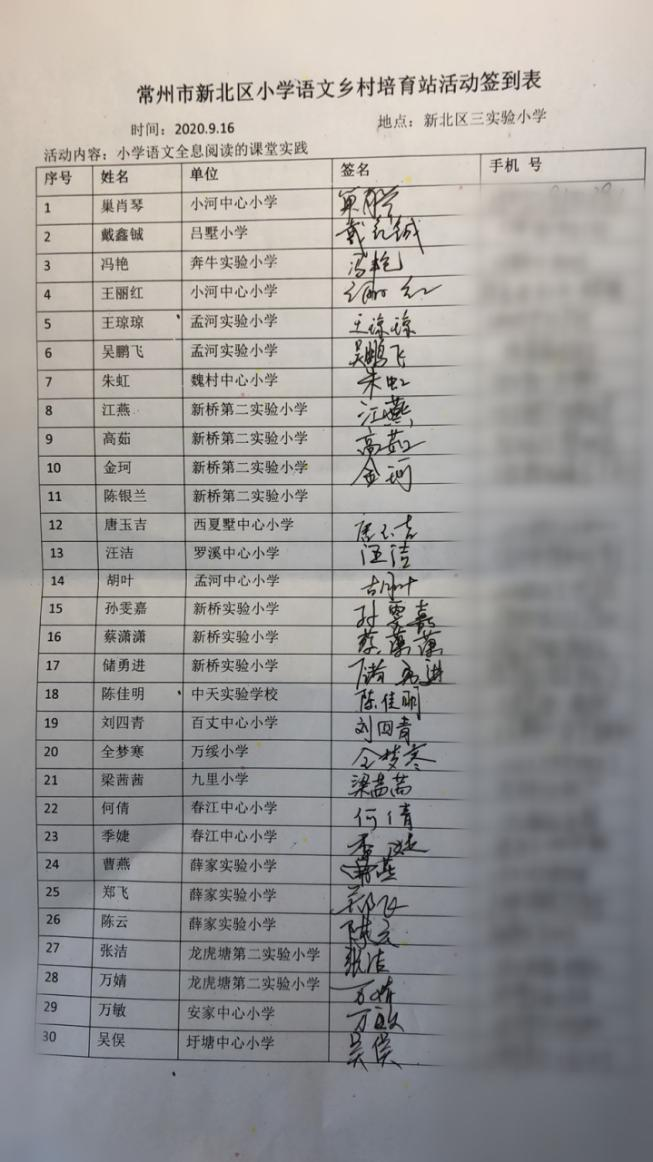 常州市新北区小学语文乡村培育站活动签到表
时间：2020.9.16 地点：新北区三实验小学
活动内容：小学语文全息阅读的课堂实践
序号 姓名 单位 签名 手机 号
1 巢肖琴 小河中心小学
2 戴鑫铖 吕墅小学 戴鑫铖
3 冯艳 奔牛实验小学 冯艳
4 王丽红 小河中心小学
5 王琼琼 孟河实验小学 王琼琼
6 吴鹏飞 孟河实验小学 吴鹏飞
7 朱虹 魏村中心小学 朱虹
8 江燕 新桥第二实验小学 江燕
9 高茹 新桥第二实验小学 高茹
10 金珂 新桥第二实验小学 金珂
11 陈银兰 新桥第二实验小学
12 唐玉吉 西夏墅中心小学 唐玉吉
13 汪洁 罗溪中心小学 汪洁
14 胡叶 孟河中心小学 胡叶
15 孙雯嘉 新桥实验小学 孙雯嘉
16 蔡潇潇 新桥实验小学 蔡潇潇
17 储勇进 新桥实验小学 储勇进
18 陈佳明 中天实验学校 陈佳明
19 刘四青 百丈中心小学 刘四青
20 全梦寒 万绥小学 全梦寒
21 梁茜茜 九里小学 梁茜茜
22 何倩 春江中心小学 何倩
23 季婕 春江中心小学 季婕
24 曹燕 薛家实验小学 曹燕
25 郑飞 薛家实验小学 郑飞
26 陈云 薛家实验小学 陈云
27 张洁 龙虎塘第二实验小学 张洁
28 万婧 龙虎塘第二实验小学 万婧
29 万敏 安家中心小学 万敏
30 吴俣 圩塘中心小学 吴俣